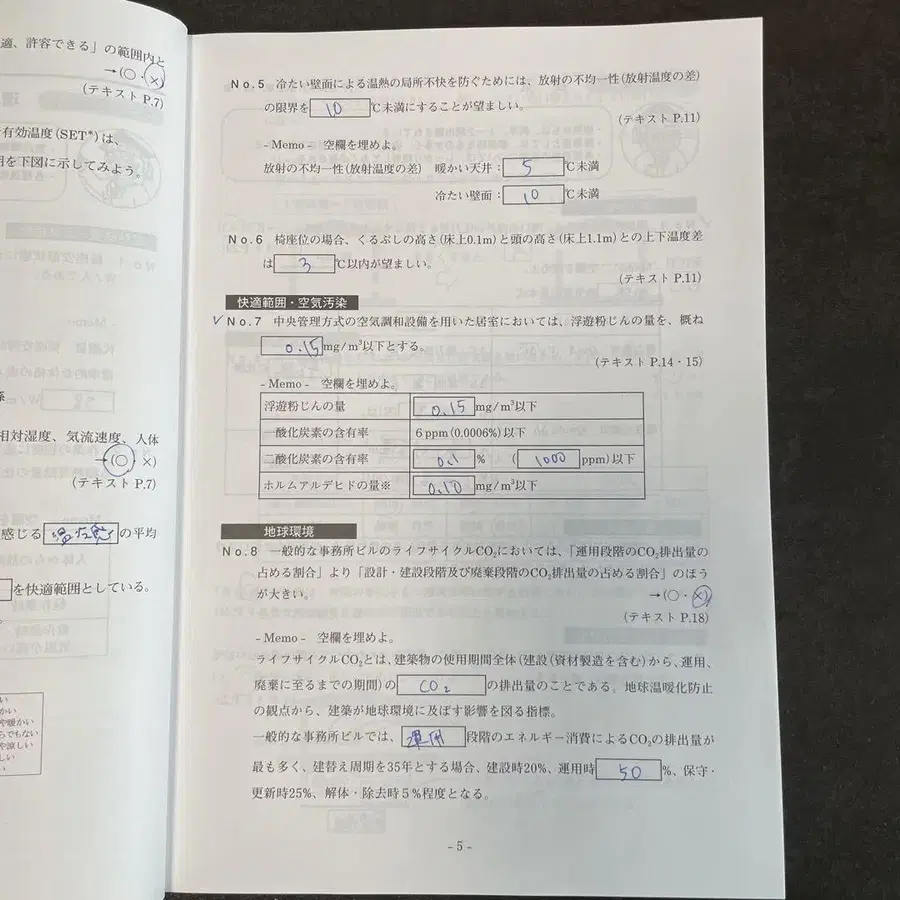 適、許容できる」の範囲内と
→(○・×)
(テキスト P.7)
有効温度(SET*)は、
明を下図に示してみよう。
相対湿度、気流速度、人体
→(○・×)
(テキスト P.7)
感じる 温冷感 の平均
を快適範囲としている。
い
かい
や暖かい
らでもない
や涼しい
しい
い
No.5 冷たい壁面による温熱の局所不快を防ぐためには、放射の不均一性(放射温度の差)
の限界を 10 ℃未満にすることが望ましい。
(テキスト P.11)
- Memo - 空欄を埋めよ。
放射の不均一性(放射温度の差) 暖かい天井: 5 ℃未満
冷たい壁面: 10 ℃未満
No.6 椅座位の場合、くるぶしの高さ(床上0.1m)と頭の高さ(床上1.1m)との上下温度差
は 3 ℃以内が望ましい。
(テキスト P.11)
快適範囲・空気汚染
✓No.7 中央管理方式の空気調和設備を用いた居室においては、浮遊粉じんの量を、概ね
0.15 mg/m³以下とする。
(テキスト P.14・15)
- Memo - 空欄を埋めよ。
浮遊粉じんの量 0.15 mg/m³以下
一酸化炭素の含有率 6 ppm (0.0006%)以下
二酸化炭素の含有率 0.1 % ( 1000 ppm)以下
ホルムアルデヒドの量※ 0.10 mg/m³以下
地球環境
No.8 一般的な事務所ビルのライフサイクルCO₂においては、「運用段階のCO₂排出量の
占める割合」より「設計・建設段階及び廃棄段階のCO₂排出量の占める割合」のほう
が大きい。 →(○・×)
(テキスト P.18)
- Memo - 空欄を埋めよ。
ライフサイクルCO₂とは、建築物の使用期間全体(建設(資材製造を含む)から、運用、
廃棄に至るまでの期間)の CO₂ の排出量のことである。地球温暖化防止
の観点から、建築が地球環境に及ぼす影響を図る指標。
一般的な事務所ビルでは、 運用 段階のエネルギー消費によるCO₂の排出量が
最も多く、建替え周期を35年とする場合、建設時20%、運用時 50 %、保守・
更新時25%、解体・除去時5%程度となる。
- 5 -